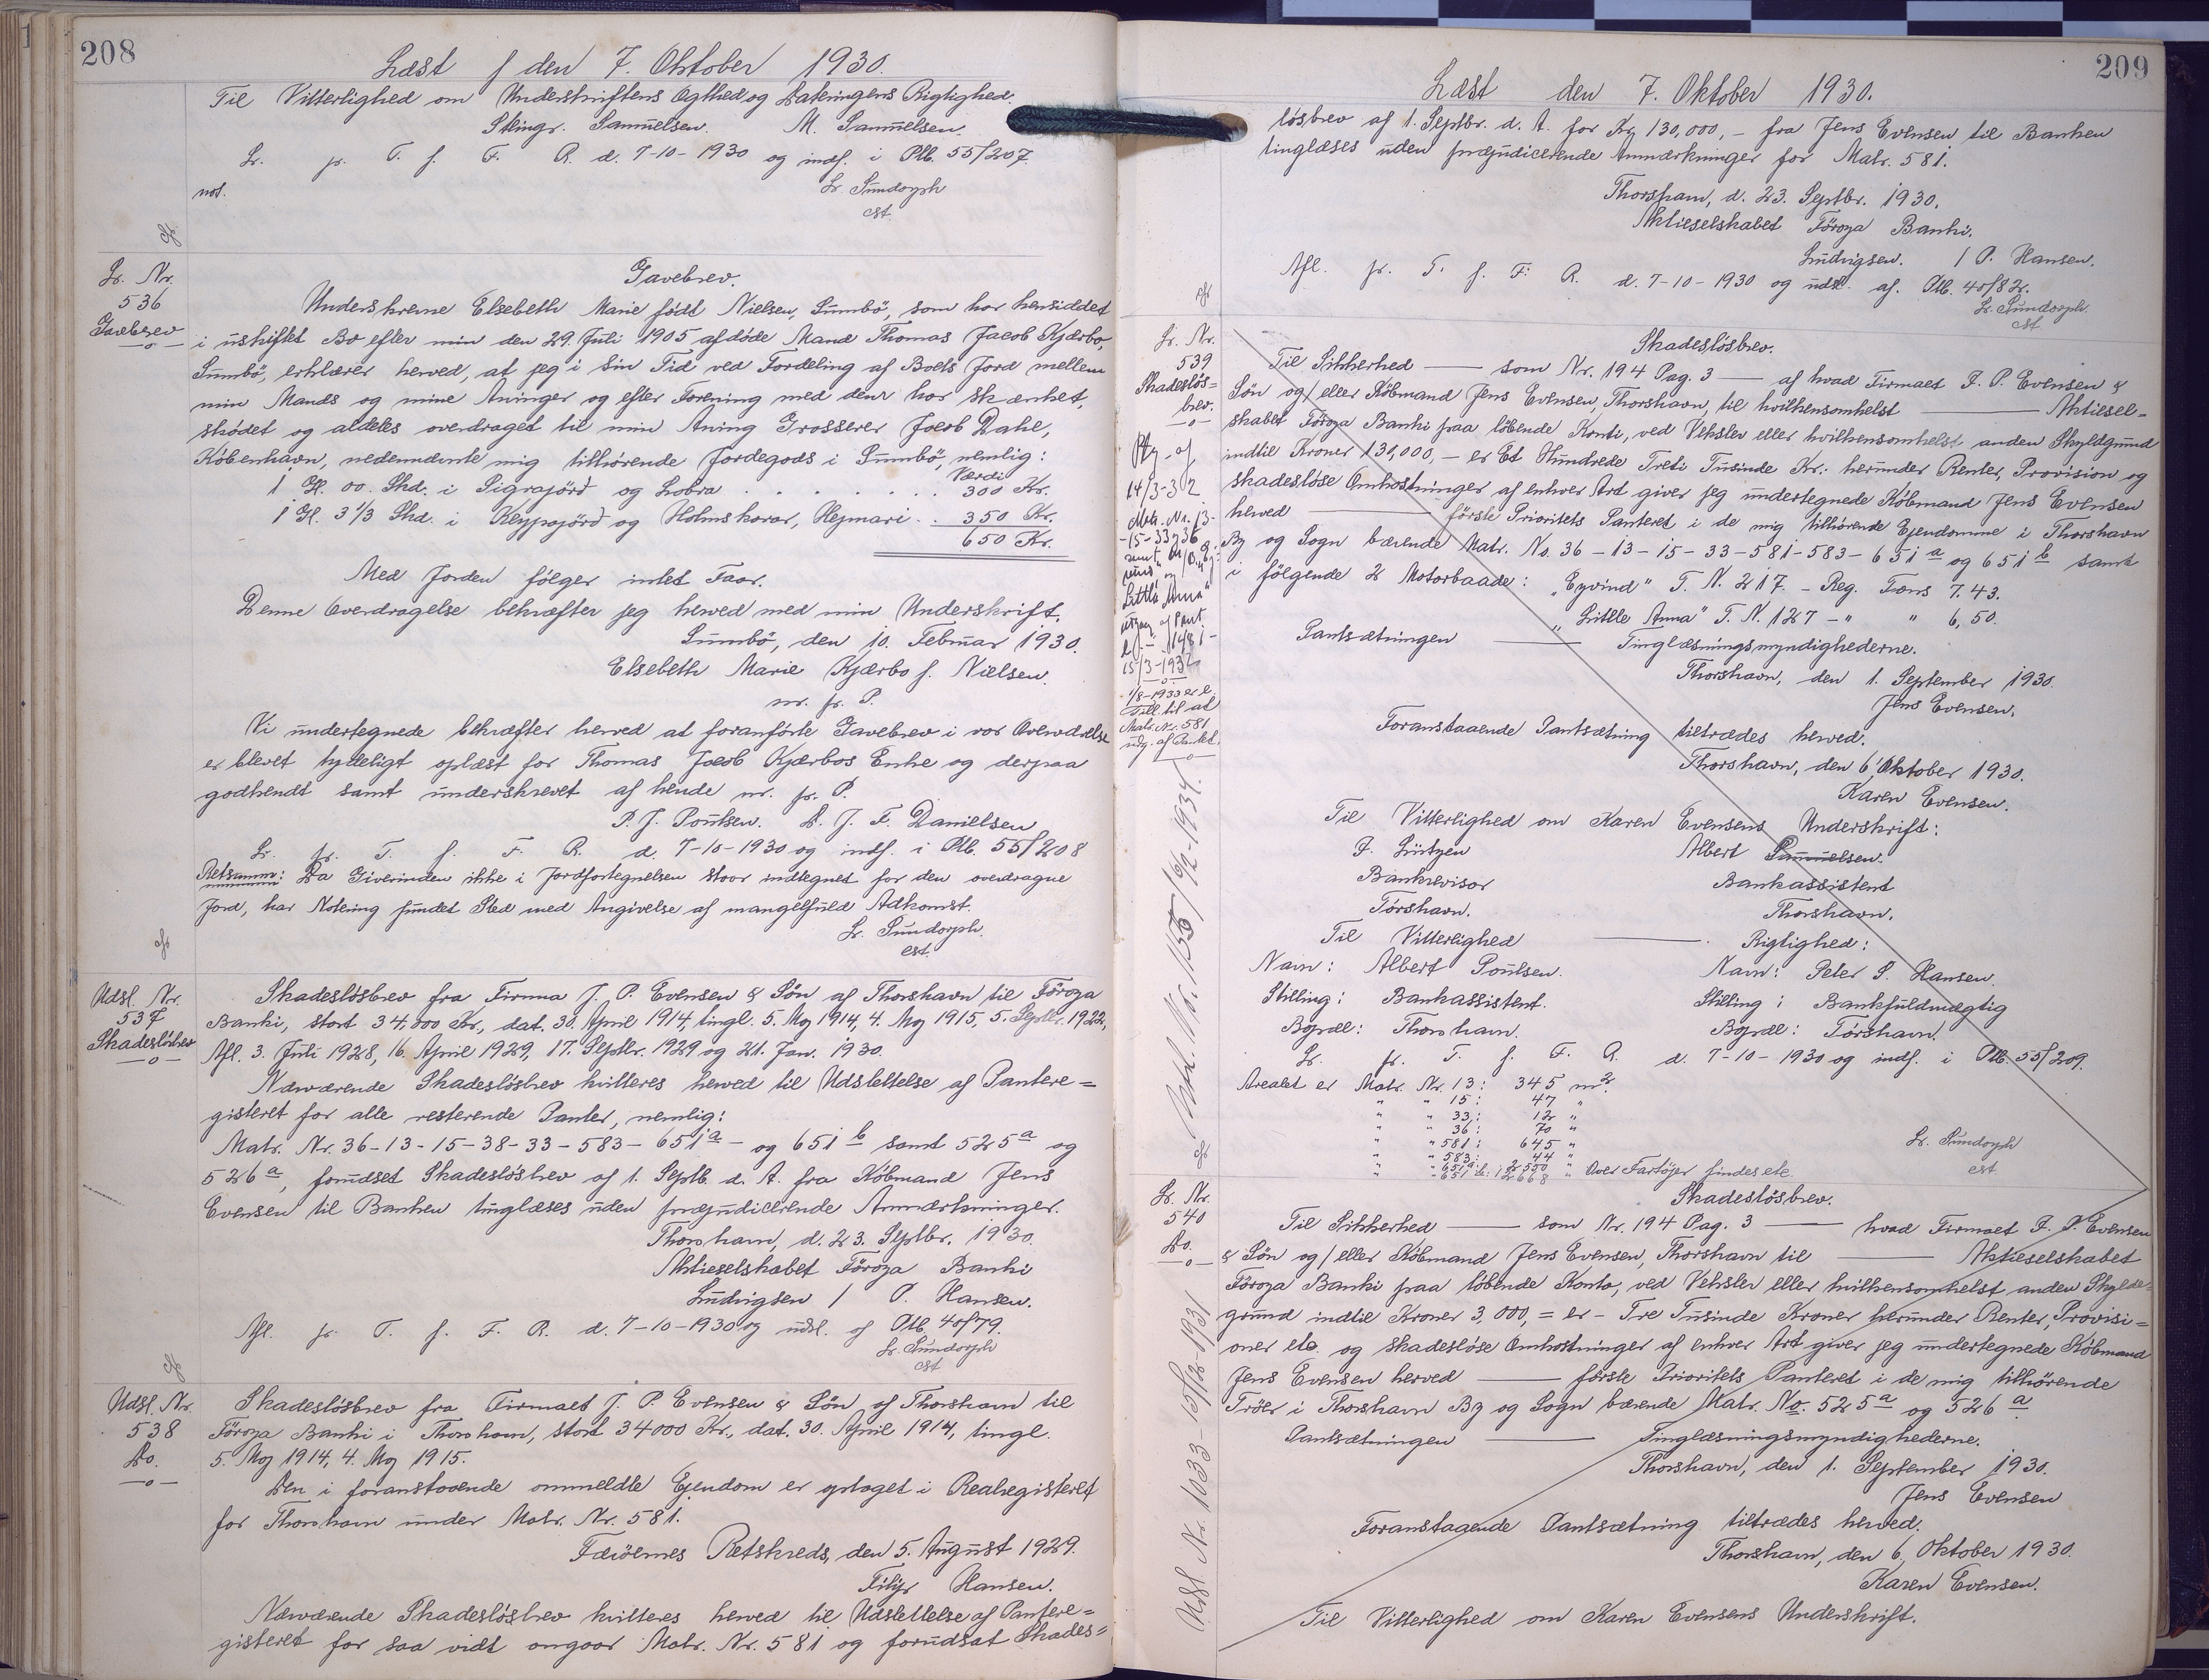 208
Læst f den 7. Oktober 1930.
Til Vitterlighed om Underskriftens Ægthed og Dateringens Rigtighed.
Stingr. Samuelsen. M. Samuelsen.
Lr. pr. T. f. F. R. d. 7-10-1930 og indf. i Ptb. 55/207.
Lr. Sundorph
cst.
not.
Lr. Nr.
536
Gavebrev
Gavebrev.
Underskrevne Elsebeth Marie født Nielsen, Sumbö, som har hensiddet
i uskiftet Bo efter min den 29. Juli 1905 afdöde Mand Thomas Jacob Kjærbo,
Sumbö, erklærer herved, at jeg i sin Tid ved Fordeling af Boets Jord mellem
min Mands og mine Arvinger og efter Forening med dem har skænket,
sködet og aldeles overdraget til min Arving Grosserer Jacob Dahl,
København, nedennævnte mig tilhørende Jordegods i Sumbö, nemlig:
Værdi
1 Gl. 00. Skd. i Sigrajörd og Lobra . . . . . . . 300 Kr.
1 Gl. 3 1/3 Skd. i Keypajörd og Holmskorar, Hejmari . . 350 Kr.
650 Kr.
Med Jorden følger intet Faar.
Denne Overdragelse bekræfter jeg herved med min Underskrift.
Sumbö, den 10. Februar 1930.
Elsebeth Marie Kjærbo f. Nielsen.
m. f. P.
Vi undertegnede bekræfter herved at foranförte Gavebrev i vor Overværelse
er blevet tydeligt oplæst for Thomas Jacob Kjærbos Enke og derpaa
godkendt samt underskrevet af hende m. f. P.
P. J. Poulsen. D. J. F. Danielsen
Lr. pr. T. f. F. R. d. 7-10-1930 og indf. i Ptb. 55/208
Retsanm: Da Giverinden ikke i Jordfortegnelsen staar indtegnet for den overdragne
Jord, har Notering fundet Sted med Angivelse af mangelfuld Adkomst.
Lr. Sundorph.
cst.
Udsl. Nr.
537
Skadeslösbrev
Skadeslösbrev fra Firma J. P. Evensen & Sön af Thorshavn til Föroya
Banki, stort 34,000 Kr., dat. 30. April 1914, tingl. 5. Maj 1914, 4. Maj 1915, 5. Septbr. 1922,
Afl. 3. Juli 1928, 16. April 1929, 17. Septbr. 1929 og 21. Jan. 1930.
Nærværende Skadeslösbrev kvitteres herved til Udslettelse af Pantere=
gisteret for alle resterende Panter, nemlig:
Matr. Nr. 36-13-15-38-33-583-651 a - og 651 b samt 525 a og
526 a, forudsat Skadeslösbrev af 1. Septb. d. A. fra Köbmand Jens
Evensen til Banken tinglæses uden præjudicerende Anmærkninger.
Thorshavn, d. 23. Septbr. 1930.
Aktieselskabet Föroya Banki
Ludvigsen / P. Hansen.
Afl. pr. T. f. F. R. d. 7-10-1930 og udsl. af Ptb. 40/79.
Lr. Sundorph
cst
Udsl. Nr.
538
Do.
Skadeslösbrev fra Firmaet J. P. Evensen & Sön af Thorshavn til
Föroya Banki i Thorshavn, stort 34000 Kr., dat. 30. April 1914, tingl.
5. Maj 1914, 4. Maj 1915.
Den i foranstaaende ommeldte Ejendom er optaget i Realregisteret
for Thorshavn under Matr. Nr. 581.
Færöernes Retskreds, den 5. August 1929.
Filip Hansen.
Nærværende Skadeslösbrev kvitteres herved til Udslettelse af Pantere=
gisteret for saa vidt angaar Matr. Nr. 581 og forudsat Skades=
209
Læst den 7. Oktober 1930.
lösbrev af 1. Septbr. d. A. for Kr. 130,000,- fra Jens Evensen til Banken
tinglæses uden præjudicerende Anmærkninger for Matr. 581.
Thorshavn, d. 23. Septbr. 1930.
Aktieselskabet Föroya Banki.
Ludvigsen. / P. Hansen.
Afl. pr. T. f. F. R. d. 7-10-1930 og udsl. af. Ptb. 40/82.
Lr. Sundorph.
cst
Lr. Nr.
539
Skadeslös=
brev.
Ptg. af
14/3-32
Matr. Nr. 13-
-15-33 og 36
"Little Anna"
udgaar af Pant.
15/3-1932
1/8-1933 er e.
Till. til at
Matr. Nr. 581
udg. af Pantet.
Skadeslösbrev.
Til Sikkerhed — som Nr. 194 Pag. 3 — af hvad Firmaet J. P. Evensen &
Sön og/eller Köbmand Jens Evensen, Thorshavn, til hvilkensomhelst — Aktiesel=
skabet Föroya Banki paa löbende Konti, ved Veksler eller hvilkensomhelst anden Skyldgrund
indtil Kroner 130,000,- er Et Hundrede Treti Tusinde Kr. herunder Renter, Provision og
skadeslöse Omkostninger af enhver Art giver jeg undertegnede Köbmand Jens Evensen
herved — förste Prioritets Panteret i de mig tilhörende Ejendomme i Thorshavn
By og Sogn bærende Matr. No. 36-13-15-33-581-583-651 a og 651 b samt
i følgende 2 Motorbaade: "Eyvind" T. N. 217. - Reg. Tons 7.43.
"Little Anna" T. N. 127 - " " 6,50.
Pantsætningen — Tinglæsningsmyndighederne.
Thorshavn, den 1. September 1930.
Jens Evensen.
Foranstaaende Pantsætning tiltrædes herved.
Thorshavn, den 6. Oktober 1930.
Karen Evensen.
Til Vitterlighed om Karen Evensens Underskrift:
J. Lützen Albert Samuelsen.
Bankrevisor Bankassistent
Tórshavn. Thorshavn.
Til Vitterlighed — Rigtighed:
Navn: Albert Poulsen. Navn: Peter S. Hansen.
Stilling: Bankassistent. Stilling: Bankfuldmægtig
Bopæl: Thorshavn. Bopæl: Tórshavn.
Lr. pr. T. f. F. R. d. 7-10-1930 og indf. i Ptb. 55/209.
Arealet er Matr. Nr. 13: 345 m2.
" " 15: 47 "
" " 33: 12 "
" " 36: 70 "
" " 581: 645 "
" " 583: 44 "
" " 651 a: 2550 " Over Fartøjer findes etc.
" " 651 b: 12668 "
Lr. Sundorph
cst.
Udsl. Nr. 1556/16/2-1934.
Lr. Nr.
540
Do.
Skadeslösbrev.
Til Sikkerhed — som Nr. 194 Pag. 3 — hvad Firmaet J. P. Evensen
& Sön og/eller Köbmand Jens Evensen, Thorshavn til — Aktieselskabet
Föroya Banki paa löbende Konto, ved Veksler eller hvilkensomhelst anden Skylds=
grund indtil Kroner 3,000,= er - Tre Tusinde Kroner herunder Renter, Provisi=
oner etc. og skadeslöse Omkostninger af enhver Art giver jeg undertegnede Köbmand
Jens Evensen herved — förste Prioritets Panteret i de mig tilhörende
Tröer i Thorshavn By og Sogn bærende Matr. No. 525 a og 526 a.
Pantsætningen — Tinglæsningsmyndighederne.
Thorshavn, den 1. September 1930.
Jens Evensen
Foranstaaende Pantsætning tiltrædes herved.
Thorshavn, den 6. Oktober 1930.
Karen Evensen.
Til Vitterlighed om Karen Evensens Underskrift.
Udsl. Nr. 1033-15/12-1931